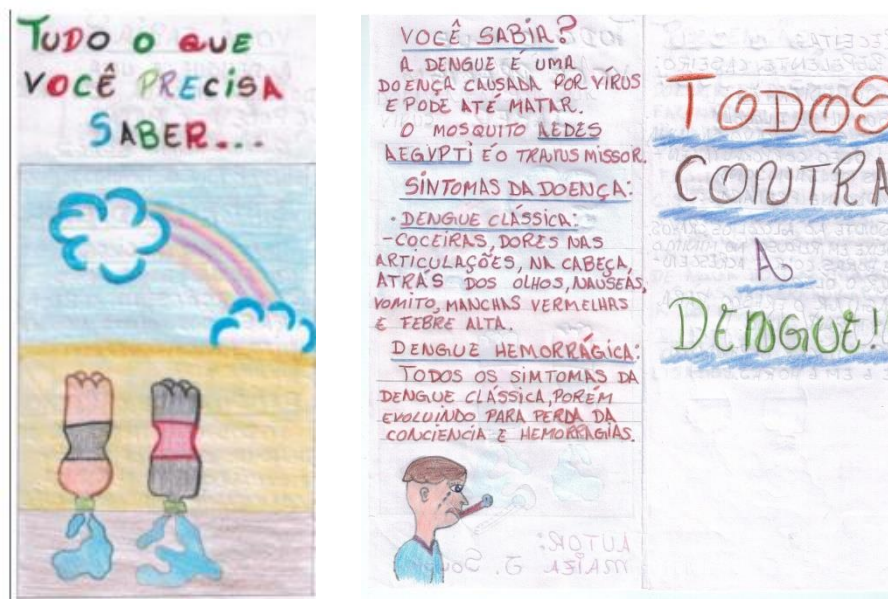 TUDO O QUE
VOCÊ PRECISA
SABER...
VOCÊ SABIA?
A DENGUE É UMA
DOENÇA CAUSADA POR VÍRUS
E PODE ATÉ MATAR.
O MOSQUITO AEDES
AEGYPTI É O TRANSMISSOR.
SINTOMAS DA DOENÇA:
· DENGUE CLÁSSICA:
- COCEIRAS, DORES NAS
ARTICULAÇÕES, NA CABEÇA,
ATRÁS DOS OLHOS, NAUSEAS,
VOMITO, MANCHAS VERMELHAS
E FEBRE ALTA.
DENGUE HEMORRÁGICA:
TODOS OS SIMTOMAS DA
DENGUE CLÁSSICA, PORÉM
EVOLUINDO PARA PERDA DA
CONCIENCIA E HEMORRAGIAS.
TODOS
CONTRA
A
DENGUE!